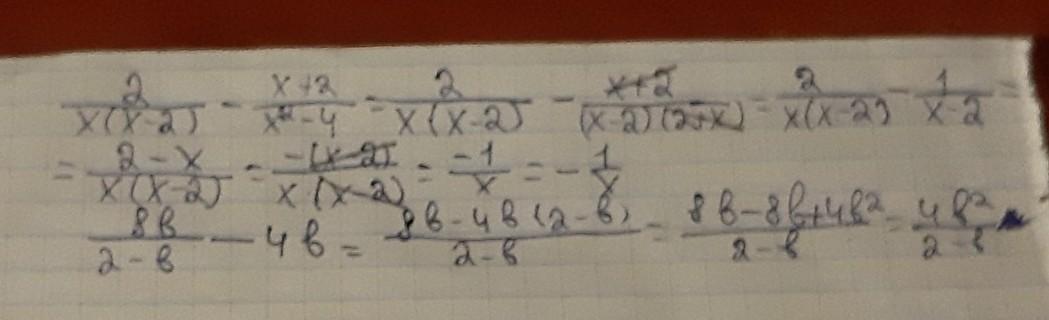 2/(x(x-2)) - (x+2)/(x²-4) = 2/(x(x-2)) - (x+2)/((x-2)(2+x)) = 2/(x(x-2)) - 1/(x-2) =
= (2-x)/(x(x-2)) = (-(x-2))/(x(x-2)) = (-1)/x = -1/x
8b/(2-b) - 4b = (8b-4b(2-b))/(2-b) = (8b-8b+4b²)/(2-b) = 4b²/(2-b)